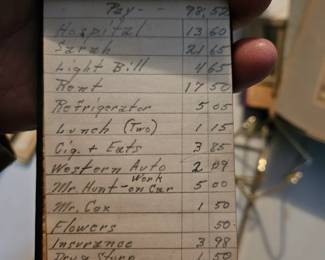 Pay - - 98.52
Hospital 13 60
Sarah 21 65
Light Bill 4 65
Rent 17 50
Refrigerator 5 05
Lunch (Two) 1 15
Cig. + Eats 3 85
Western Auto 2 09
Mr. Hunt - Work on Car 5 00
Mr. Cox 1 50
Flowers 50
Insurance 3 98
Drug Store 1 50